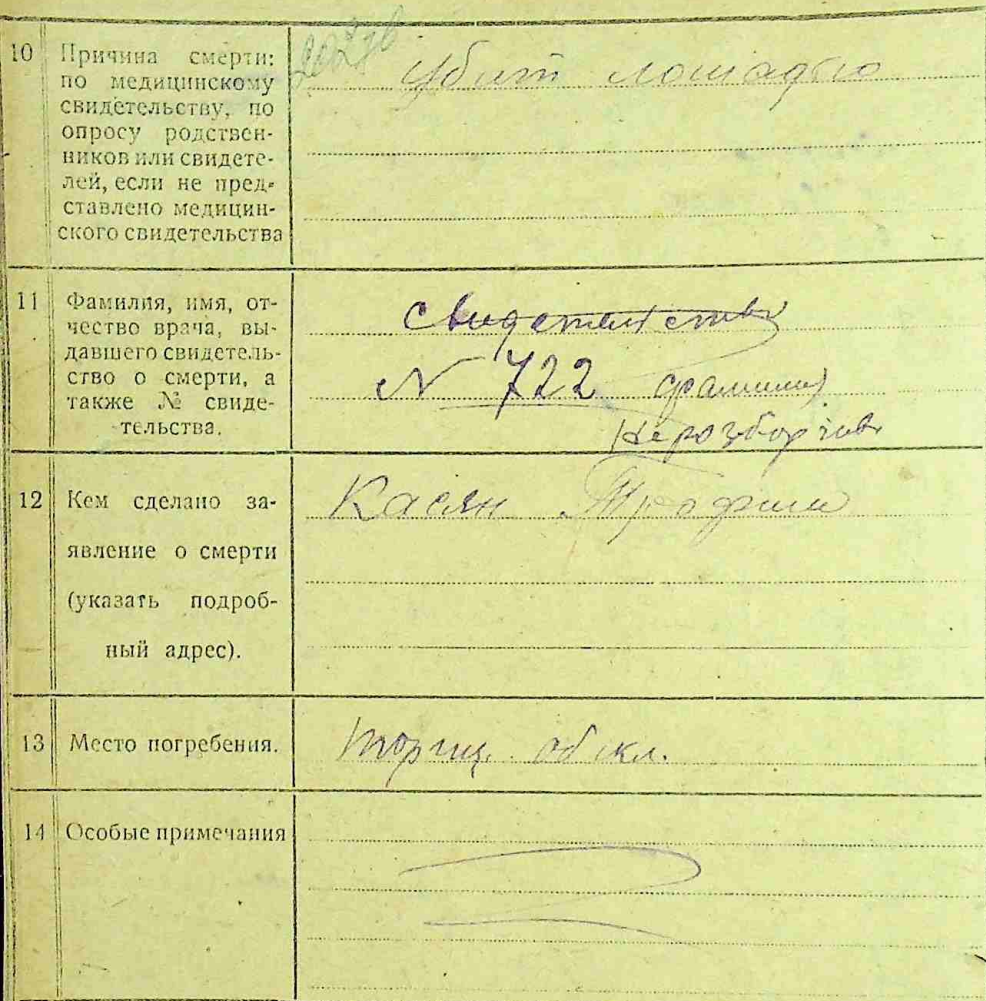 10 Причина смерти:
по медицинскому
свидетельству, по
опросу родствен-
ников или свидете-
лей, если не пред-
ставлено медицин-
ского свидетельства
Убит лошадью
11 Фамилия, имя, от-
чество врача, вы-
давшего свидетель-
ство о смерти, а
также № свиде-
тельства.
N 722
12 Кем сделано за-
явление о смерти
(указать подроб-
ный адрес).
Касян Трофим
13 Место погребения.
14 Особые примечания